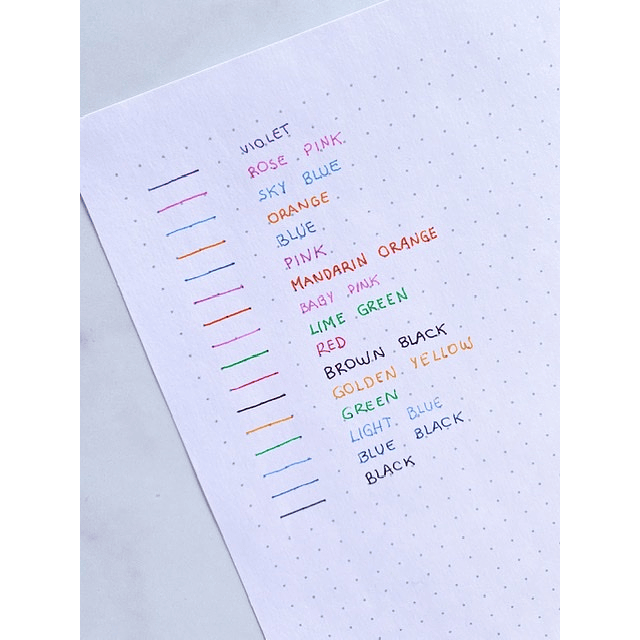 VIOLET
ROSE PINK
SKY BLUE
ORANGE
BLUE
PINK
MANDARIN ORANGE
BABY PINK
LIME GREEN
RED
BROWN BLACK
GOLDEN YELLOW
GREEN
LIGHT BLUE
BLUE BLACK
BLACK